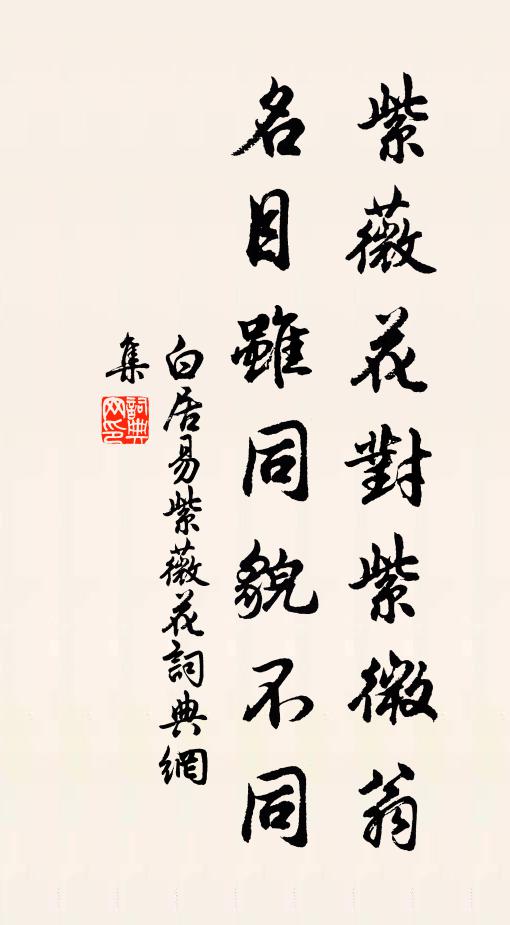 紫薇花對紫微翁
名目雖同貌不同
白居易紫薇花詞典網
集
詞典
网印